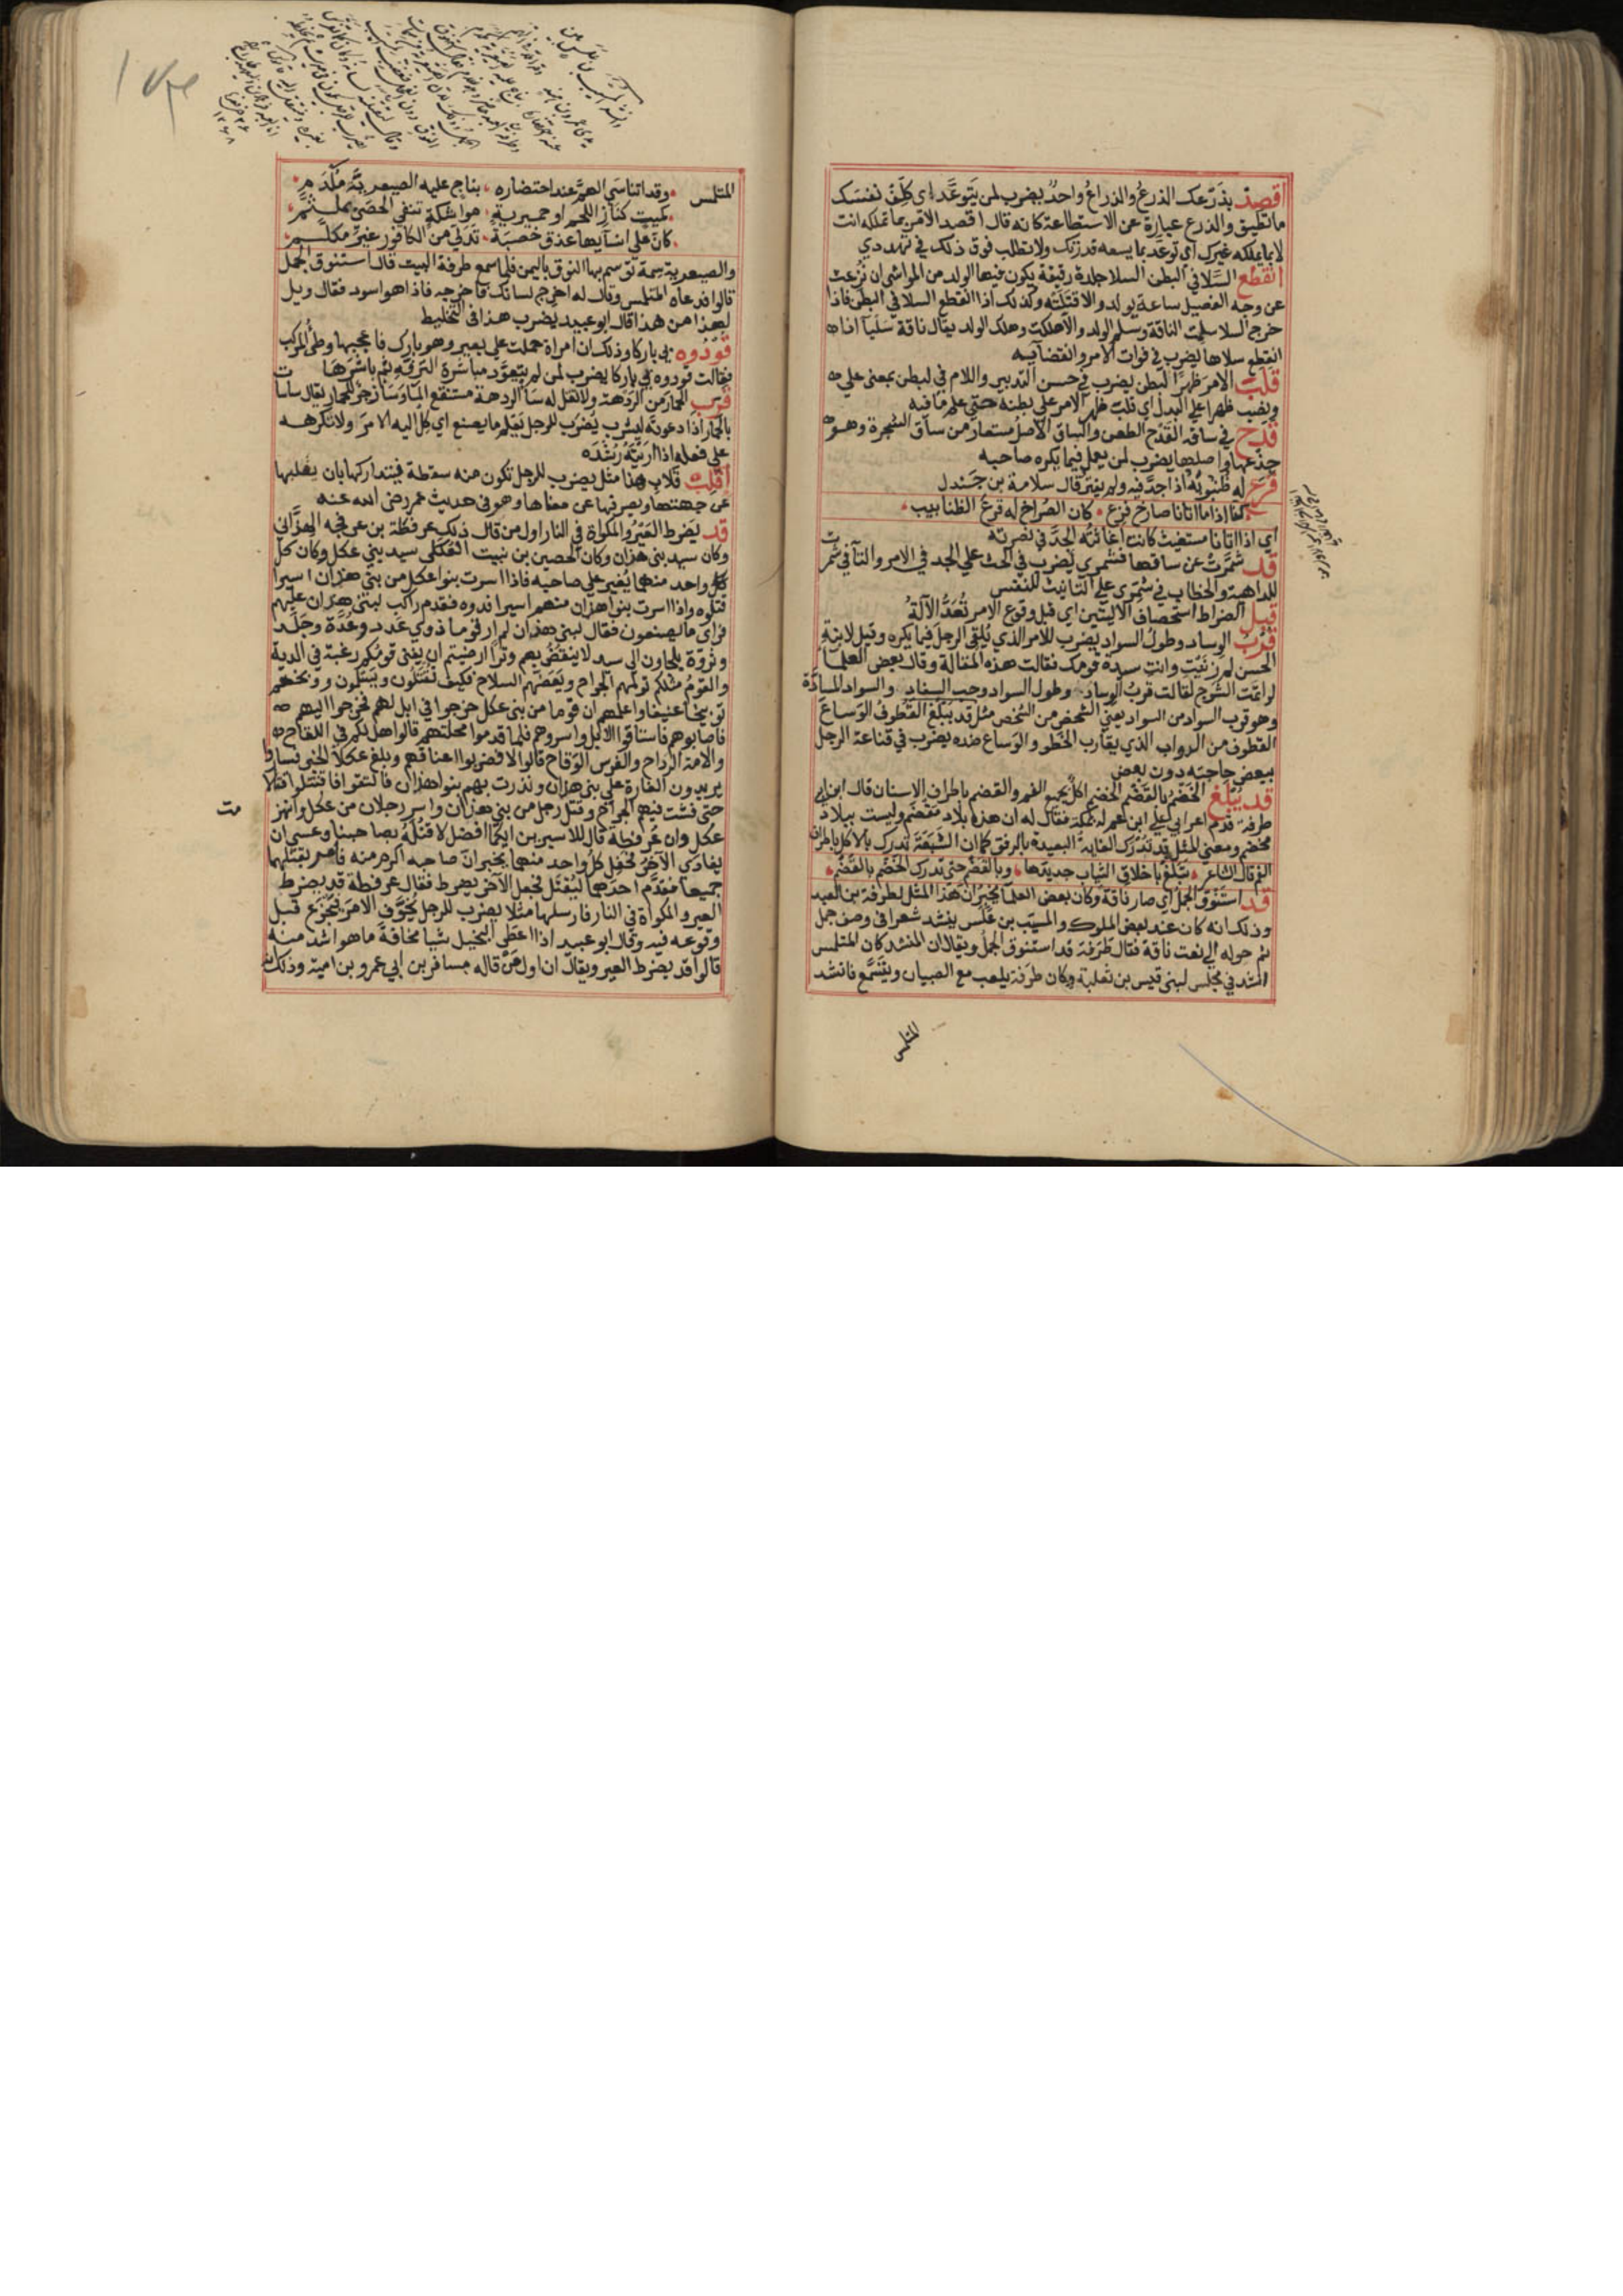 اقصد بذرعك الذرع والذراع واحد يضرب لمن يتوعد اى كلف نفسك
ما تطيق والذرع عبارة عن الاستطاعة كانه قال اقصد الامر بما تملكه انت
لا بما يملكه غيرك اى توعد بما يسعه قدرتك ولا تطلب فوق ذلك في تهددي
انقطع السلا في البطن السلا جلدة رقيقة يكون فيها الولد من المواشي ان نزعت
عن وجه الفصيل ساعة يولد والا قتلته وكذلك اذا انقطع السلا في البطن فاذا
خرج السلا سلمت الناقة وسلم الولد والا هلكت وهلك الولد يقال ناقة سليا اذا
انقطع سلاها يضرب في فوات الامر وانقضايه
قلب الامر ظهرا لبطن يضرب في حسن التدبير واللام في لبطن بمعنى على
ونصب ظهرا على البدل اي قلب ظهر الامر على بطنه حتى علم ما فيه
قدح في ساقه القدح الطعن والساق الاصل مستعار من ساق الشجرة وهو
جذعها واصلها يضرب لمن يعمل فيما يكره صاحبه
قرع له ظنبوبه اذا جد فيه ولم يفتر قال سلامة بن جندل
كنا اذا ما اتانا صارخ فزع كان الصراخ له قرع الظنابيب
اي اذا اتانا مستغيث كانت اغاثته الجد في نصرته
قد شمرت عن ساقها فشمري يضرب في الحث على الجد في الامر والتا في شمرت
للداهية والخطاب في شمري على التانيث للنفس
قبل الضراط استحصاف الاليتين اي قبل وقوع الامر تعد الآلة
قرب الوساد وطول السواد يضرب للامر الذي يلقى الرجل فيما يكره وقيل لابنة
الحسن لم زنيت وانت سيدة قومك فقالت هذه المقالة وقال بعض العلما
لو اتمت الشرح لقالت قرب الوساد وطول السواد وحب السفاد والسواد المسارة
وهو قرب السواد من السواد يعنى الشخص من الشخص مثل قد يبلغ القطوف الوساع
القطوف من الدواب الذي يقارب الخطو والوساع ضده يضرب في قناعة الرجل
ببعض حاجته دون بعض
قد يبلغ الخضم بالقضم الخضم اكل بجميع الفم والقضم باطراف الاسنان قال ابن ابي
طرفة قدم اعرابي على ابن عم له بمكة فقال له ان هذه بلاد مقضم وليست ببلاد
مخضم ومعنى المثل قد تدرك الغاية البعيدة بالرفق كما ان الشبعة تدرك بالاكل باطراف
الفم قال الشاعر تبلغ باخلاق الثياب جديدها وبالقضم حتى تدرك الخضم بالقضم
قد استنوق الجمل اي صار ناقة وكان بعض العلما يخبر ان هذا المثل لطرفة بن العبد
وذلك انه كان عند بعض الملوك والمسيب بن علس ينشد شعرا في وصف جمل
ثم حوله الى نعت ناقة فقال طرفة قد استنوق الجمل ويقال ان المنشد كان المتلمس
انشد في مجلس لبنى قيس بن ثعلبة وكان طرفة يلعب مع الصبيان ويتسمع فانشد
المتلمس
المتلمس وقد اتناسى الهم عند احتضاره بناج عليه الصيعرية مكدم
كميت كناز اللحم او حميرية مواشكة تنفى الحصى بملثم
كان على انسايها عذق خصبة تدلى من الكافور غير مكمم
والصيعرية سمة توسم بها النوق باليمن فلما سمع طرفة البيت قال استنوق الجمل
قالوا فدعاه المتلمس وقال له اخرج لسانك فاخرجه فاذا هو اسود فقال ويل
لهذا من هذا قال ابو عبيد يضرب هذا فى التخليط
قودوه بي باركا وذلك ان امراة حملت على بعير وهو بارك فاعجبها وطئ المركب
فقالت قودوه بي باركا يضرب لمن لم يتعود مباشرة الترفه ثم باشرها
قرب الحمار من الردهة ولا تقل له سا الردهة مستنقع الما وسا زجر للحمار يقال ساسا
بالحمار اذا دعوته ليشرب يضرب للرجل يعلم ما يصنع اي كل اليه الامر ولا تكرهه
على فعله اذا اريته رشده
اقلب قلاب هذا مثل يضرب للرجل تكون منه سقطة فيتداركها بان يقلبها
عن جهتها ويصرفها عن معناها وهو فى حديث عمر رضى الله عنه
قد يضرط العير والمكواة في النار اول من قال ذلك عرفطة بن عرفجه الهزانى
وكان سيد بنى هزان وكان الحصين بن نبيت العكلى سيد بني عكل وكان كل
كل واحد منهما يغير على صاحبه فاذا اسرت بنوا عكل من بني هزان اسيرا
قتلوه واذا اسرت بنوا هزان منهم اسيرا فدوه فقدم راكب لبنى هزان عليهم
فراى ما يصنعون فقال لبني هزان لم ار قوما ذوي عدد وعدة وجلد
وثروة يلجاون الى سيد لا ينقض بهم وترا ارضيتم ان يفنى قومكم رغبة في الدية
والقوم مثلكم تولمهم الجراح ويعضهم السلاح فكيف تقتلون ويسلمون ووبخهم
توبيخا عنيفا واعلمهم ان قوما من بنى عكل خرجوا في ابل لهم فخرجوا اليهم
فاصابوهم فاستاقوا الابل واسروهم فلما قدموا محلتهم قالوا هل لكم في اللقاح
والامة الرداح والفرس الوقاح قالوا لا فضربوا اعناقهم وبلغ عكلا الخبر فساروا
يريدون الغارة على بنى هزان ونذرت بهم بنوا هزان فالتقوا فاقتتلوا قتالا
حتى فشت فيهم الجراح وقتل رجل من بني هزان واسر رجلان من عكل وانهزمت
عكل وان عرفطة قال للاسيرين ايكما افضل لاقتله بصاحبنا وعسى ان
يفادى الآخر فجعل كل واحد منهما يخبر ان صاحبه اكرم منه فامر بقتلهما
جميعا فقدم احدهما ليقتل فجعل الآخر يضرط فقال عرفطة قد يضرط
العير والمكواة في النار فارسلها مثلا يضرب للرجل يخوف الامر فيجزع قبل
وقوعه فيه وقال ابو عبيد اذا اعطى البخيل شيا مخافة ما هو اشد منه
قالوا قد يضرط العير ويقال ان اول من قاله مسافر بن ابي عمرو بن امية وذلك انه